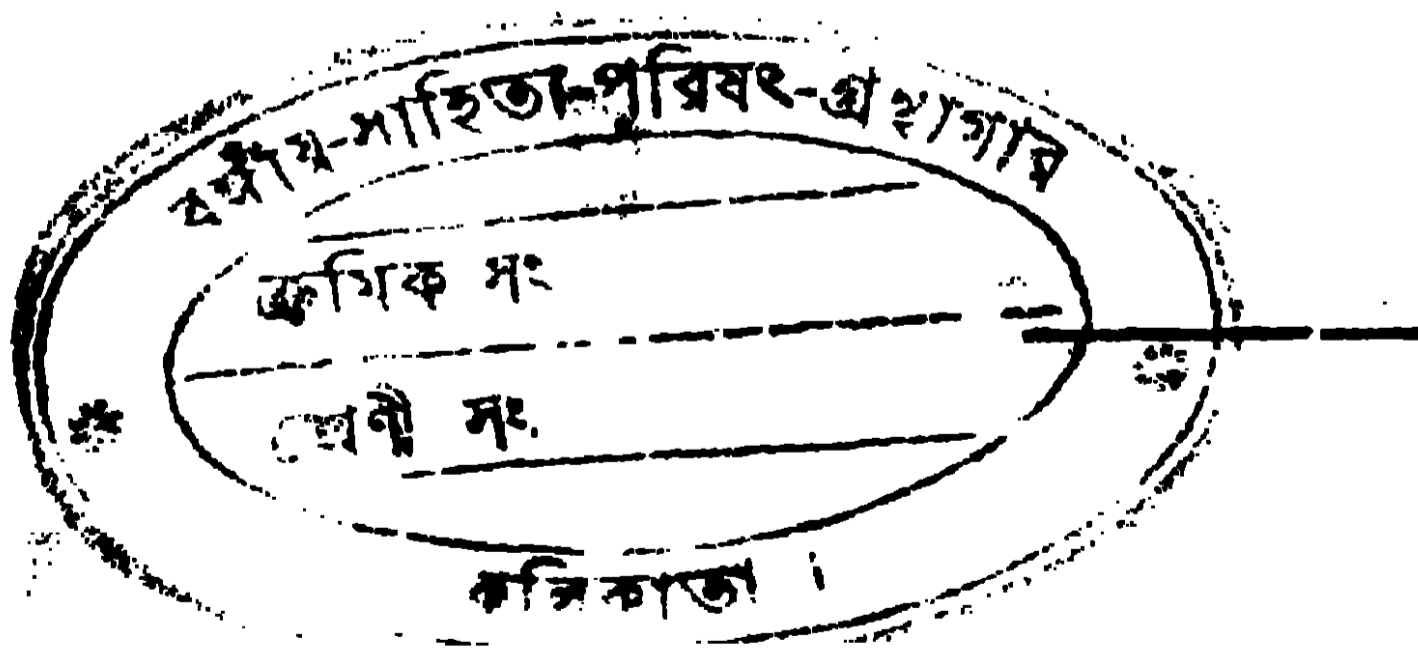 বঙ্গীয়-সাহিত্য-পরিষৎ-গ্রন্থাগার
ক্রমিক সং
শ্রেণী সং.
কলিকাতা ।